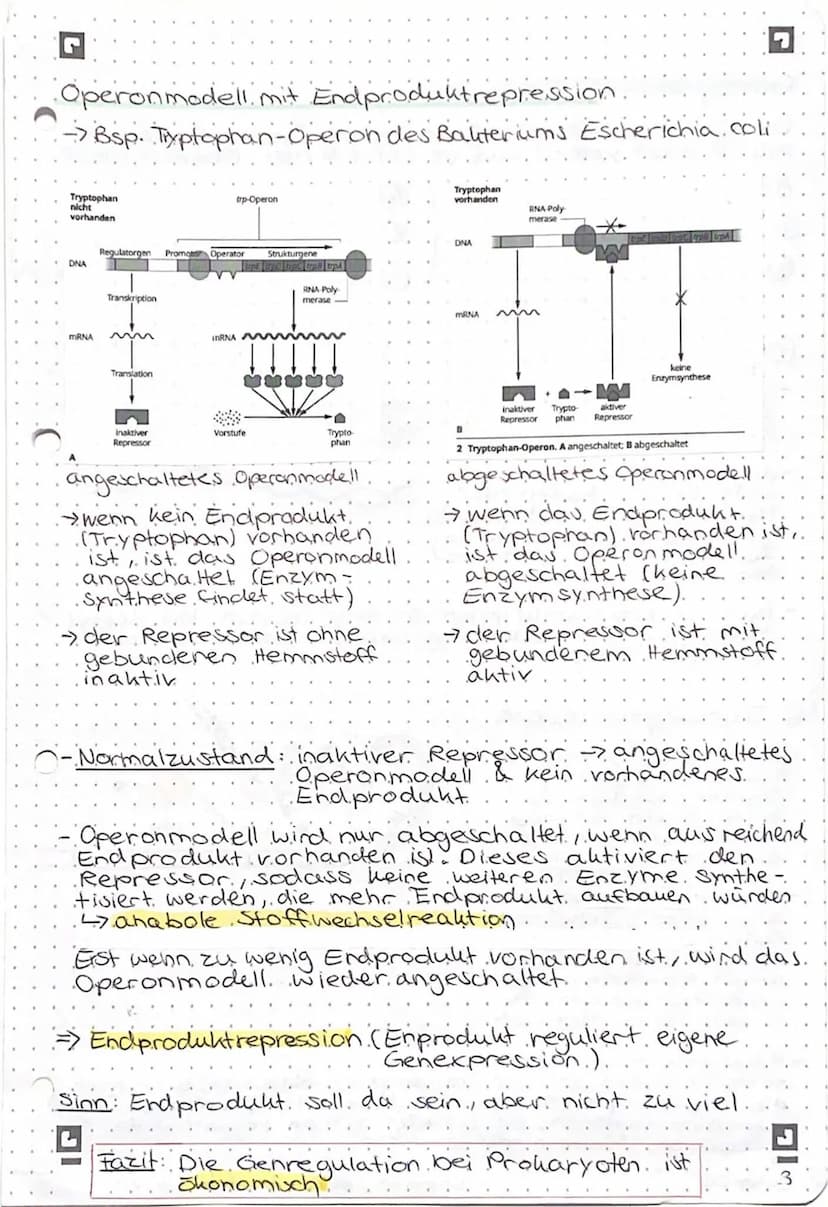 Operonmodell mit Endproduktrepression
→ Bsp. Tryptophan-Operon des Bakteriums Escherichia coli
Tryptophan
nicht
vorhanden
trp-Operon
Regulatorgen Promotor Operator Strukturgene
DNA
trpE trpD trpC trpB trpA
Transkription
RNA-Poly-
merase
mRNA
mRNA
Translation
inaktiver
Repressor
Vorstufe
Trypto-
phan
A
Tryptophan
vorhanden
RNA-Poly-
merase
DNA
trpE trpD trpC trpB trpA
mRNA
keine
Enzymsynthese
+
inaktiver
Repressor
Trypto-
phan
aktiver
Repressor
B
2 Tryptophan-Operon. A angeschaltet; B abgeschaltet
angeschaltetes Operonmodell
→ wenn kein Endprodukt
(Tryptophan) vorhanden
ist, ist das Operonmodell
angeschaltet (Enzym-
synthese findet statt)
→ der Repressor ist ohne
gebunderen Hemmstoff
inaktiv
abgeschaltetes Operonmodell
→ wenn das Endprodukt
(Tryptophan) vorhanden ist,
ist das Operonmodell
abgeschaltet (keine
Enzymsynthese)
→ der Repressor ist mit
gebunderem Hemmstoff
aktiv
- Normalzustand: inaktiver Repressor → angeschaltetes
Operonmodell & kein vorhandenes
Endprodukt
- Operonmodell wird nur abgeschaltet, wenn ausreichend
Endprodukt vorhanden ist. Dieses aktiviert den
Repressor, sodass keine weiteren Enzyme synthe-
tisiert werden, die mehr Endprodukt aufbauen würden
↳ anabole Stoffwechselreaktion
Erst wenn zu wenig Endprodukt vorhanden ist, wird das
Operonmodell wieder angeschaltet
⇒ Endproduktrepression (Enprodukt reguliert eigene
Genexpression)
Sinn: Endprodukt soll da sein, aber nicht zu viel
Fazit: Die Genregulation bei Prokaryoten ist
ökonomisch
3